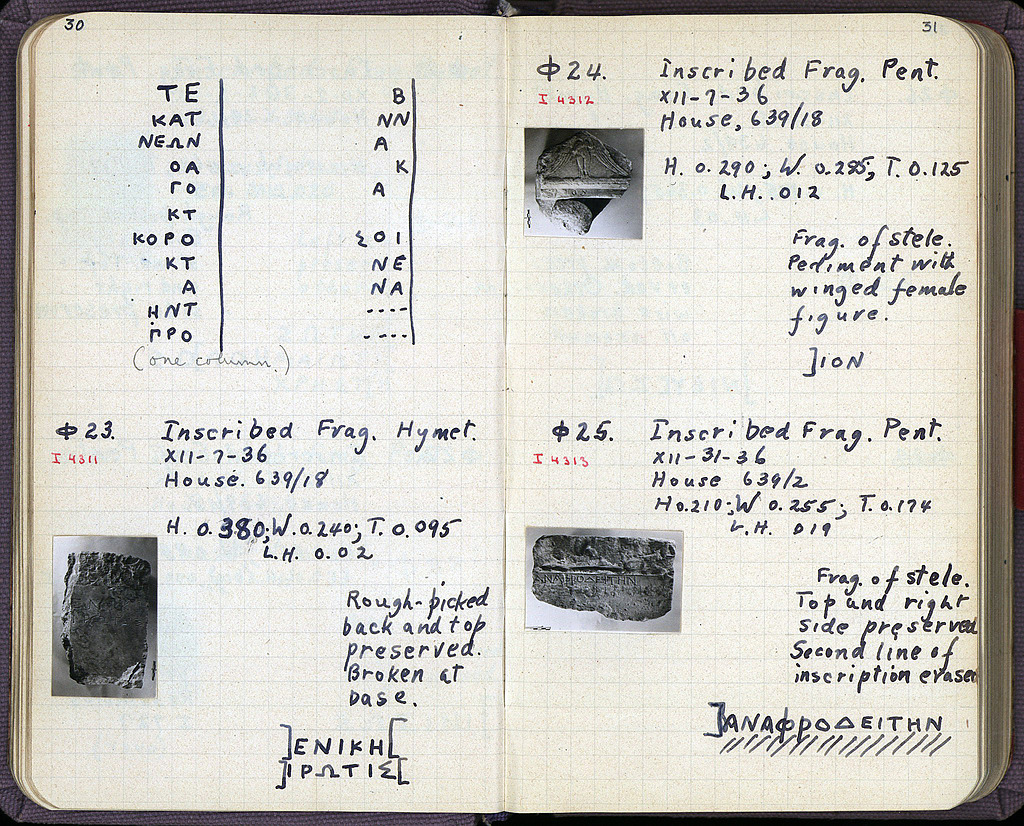 30
ΤΕ Β
ΚΑΤ ΝΝ
ΝΕΩΝ Α
ΟΑ Κ
ΓΟ Α
ΚΤ
ΚΟΡΟ ΣΟΙ
ΚΤ ΝΕ
Α ΝΑ
ΗΝΤ ----
ΠΡΟ ----
(one column.)
Φ23. Inscribed Frag. Hymet.
I 4311 XII-7-36
House. 639/18
H. 0.380; W. 0.240; T. 0.095
L.H. 0.02
Rough-picked
back and top
preserved.
Broken at
base.
]ΕΝΙΚΗ[
]ΙΡΩΤΙΣ[
31
Φ24. Inscribed Frag. Pent.
I 4312 XII-7-36
House, 639/18
H. 0.290; W. 0.285; T. 0.125
L.H. .012
Frag. of stele.
Pediment with
winged female
figure.
]ΙΟΝ
Φ25. Inscribed Frag. Pent.
I 4313 XII-31-36
House 639/2
H 0.210; W 0.255; T. 0.174
L.H. 019
Frag. of stele.
Top and right
side preserved
Second line of
inscription erased
]ΑΝΑΦΡΟΔΕΙΤΗΝ